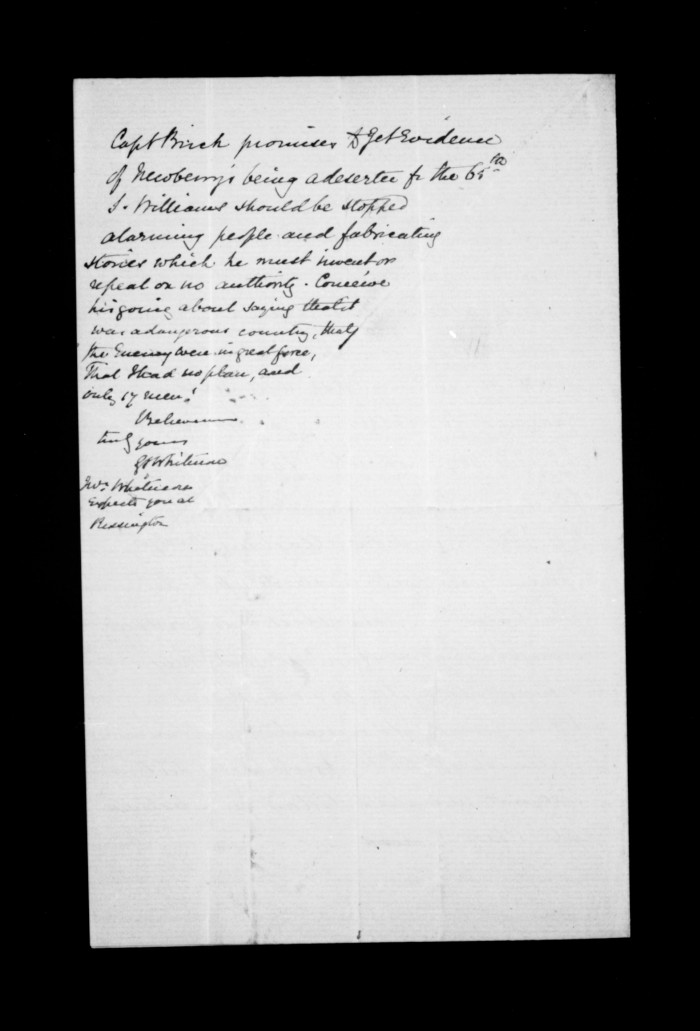 Capt Birch promises to get Evidence
of Newberry's being a deserter fr the 65th
S. Williams should be stopped
alarming people and fabricating
stories which he must invent or
repeat on no authority. Conceive
his going about saying that it
was a dangerous country, that
the Enemy were in great force,
that I had no plan, and
only 17 men!
truly yours
GS Whitmore
Mrs Whitmore
Expects you at
Rissington